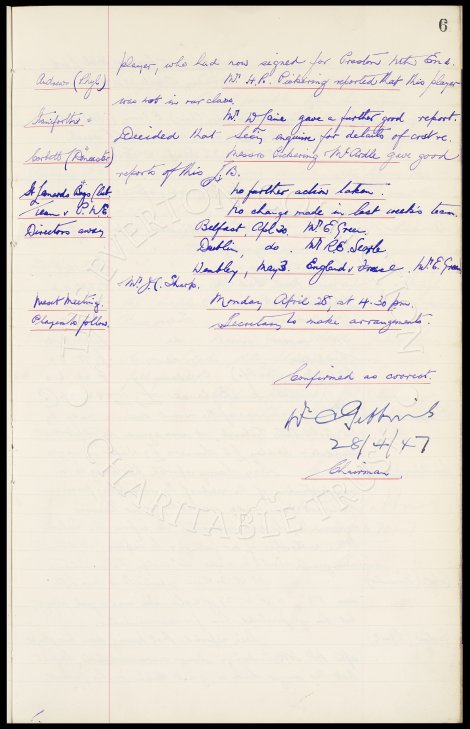 6
player, who had now signed for Preston Nth End.
Andrews (Rhyl) Mr. H.R. Pickering reported that this player
was not in our class.
Stainforth Mr. W. gave a further good report.
Decided that Secty enquire for details of cost etc.
Corbett (Doncaster) Messrs Pickering & McArdle gave good
reports of this J.B.
St. Leonards Boys Club. No further action taken.
Team v P.N.E. No change made in last week's team.
Directors away Belfast, Apl 30 Mr. E. Green.
Dublin, do. Mr. R.E. Searle
Wembley, May 3. England v France, Mr. E. Green
Mr. J.C. Sharp.
Next Meeting. Monday April 28, at 4.30 pm.
Players to follow. Secretary to make arrangements.
Confirmed as correct.
28/4/47
Chairman.
EVERTON
CHARITABLE TRUST